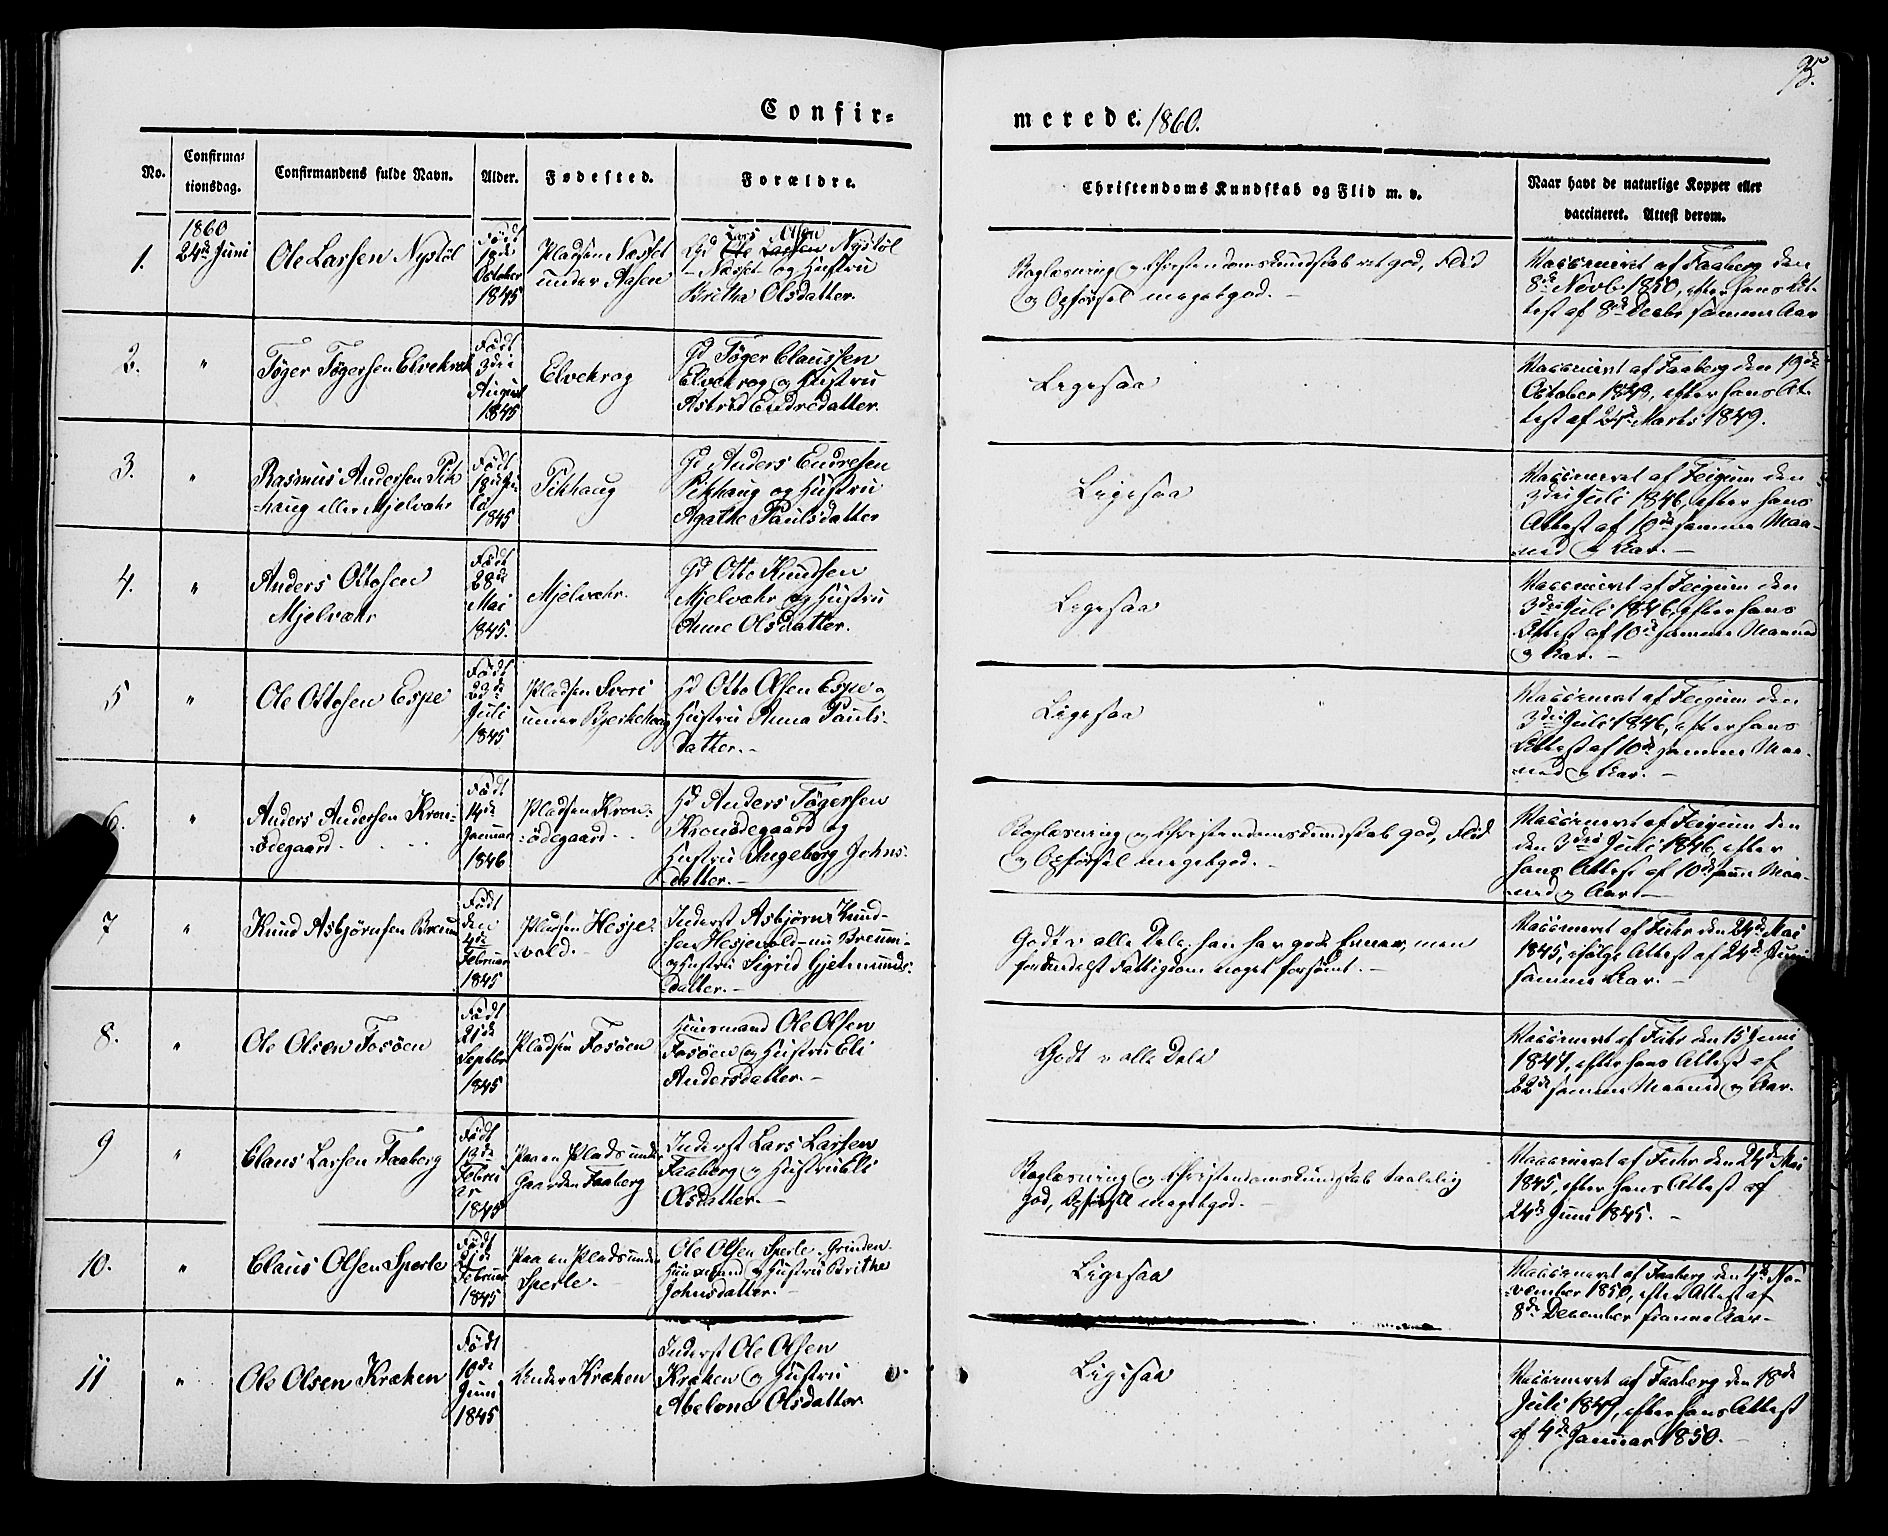 95.
Confir-
merede. 1860.
No.
Confirma-
tionsdag.
Confirmandens fulde Navn.
Alder.
Fødested.
Forældre.
Christendoms Kundskab og Flid m. v.
Naar havt de naturlige Kopper eller
vaccineret. Attest derom.
1.
1860
24de Juni
Ole Larsen Nystøl
Født
1ste
October
1845
Pladsen Næsset
under Aasen
Gd Ole Larsen Nystøl
Lars Olsen
- Næsset og Hustru
Brithe Olsdatter.
Boglæsning og Christendomskundskab ret god, Flid
og Opførsel megetgod. -
Vaccineret af Faaberg den
8de Novb. 1850, efter hans At-
test af 8de Decbr samme Aar
2.
"
Tøger Tøgersen Elvekrok
Født
3die
August
1845
Elvekrog
Gd Tøger Claussen
Elvekrog og Hustru
Astrid Endredatter.
Ligesaa
Vaccineret af Faaberg den 19de
October 1848, efter hans At-
test af 24de Marts 1849.
3.
"
Rasmus Andersen Pik-
haug eller Mjelvær
Født
1845
Pikhaug
Gd Anders Endresen
Pikhaug og Hustru
Agathe Paulsdatter
Ligesaa
Vaccineret af Feigum den
3die Juli 1846, efter hans
Attest af 10de samme Maa-
ned og Aar. -
4.
"
Anders Ottosen
Mjelvær
Født
28de
Mai
1845.
Mjelvær.
Gd Otto Knudsen
Mjelvær og Hustru
Anne Olsdatter.
Ligesaa
Vaccineret af Feigum den
3die Juli 1846, efter hans
Attest af 10de samme Maaned
og Aar. -
5
"
Ole Ottosen Espe
Født
23de
Juli
1845
Pladsen Svori
under Bjerkehoug
Hd Otto Olsen Espe og
Hustru Anna Pauls-
datter. -
Ligesaa
Vaccineret af Feigum den
3die Juli 1846, efter hans
Attest af 10de samme Maa-
ned og Aar. -
6.
"
Anders Andersen Kron-
ødegaard.
Født
14de
Januar
1846
Pladsen Kron-
ødegaard.
Hd Anders Tøgersen
Kronødegaard og
Hustru Ingeborg Johns-
datter. -
Boglæsning og Christendomskundskab god, Flid
og Opførsel megetgod. -
Vaccineret af Feigum den
den 3die Juli 1846, efter
hans Attest af 10de samme Maa-
ned og Aar -
7
"
Knud Asbjørnsen Breum
Født
den
4de
Februar
1845
Pladsen Hesje-
vold.
Inderst Asbjørn Knud-
sen Hesjevold - nu Breum -
og Hustru Sigrid Gjelmunds-
datter. -
Godt i alle Dele, han har gode Evner, men
formedelst Fattigdom noget forsømt. -
Vaccineret af Fuhr den 24de Mai
1845, ifølge Attest af 24de Juni
samme Aar. -
8.
"
Ole Olsen Fosøen
Født
21de
Septbr
1845
Pladsen Fosøen
Huusmand Ole Olsen
Fosøen og Hustru Eli
Andersdatter. -
Godt i alle Dele
Vaccineret af Fuhr den 15 Juni
1847, efter hans Attest af
22de samme Maaned og Aar.
9
"
Claus Larsen Faaberg
Født
13de
Febru
ar
1845
Paa en Plads under
Gaarden Faaberg
Inderst Lars Larsen
Faaberg og Hustru Eli
Olsdatter. -
Boglæsning og Christendomskundskab taalelig
god, Opførsel megetgod. -
Vaccineret af Fuhr den 24de Mai
1845, efter hans Attest af
24de Juni 1845. -
10.
"
Claus Olsen Sperle
Født
21de
Februar
1845
Paa en Plads under
Sperle. -
Ole Olsen Sperle - Grinden -
Huusmand og Hustru Brithe
Johnsdatter. -
Ligesaa
Vaccineret af Faaberg den 4de No-
vember 1850, efter Attest af
8de December samme Aar -
11
"
Ole Olsen Kræken
Født
10de
Juni
1845
Under Kræken
Inderst Ole Olsen
Kræken og Hustru
Abelone Olsdatter
Ligesaa
Vaccineret af Faaberg den 18de
Juli 1847, efter hans Attest
af 4de Januar 1850. -